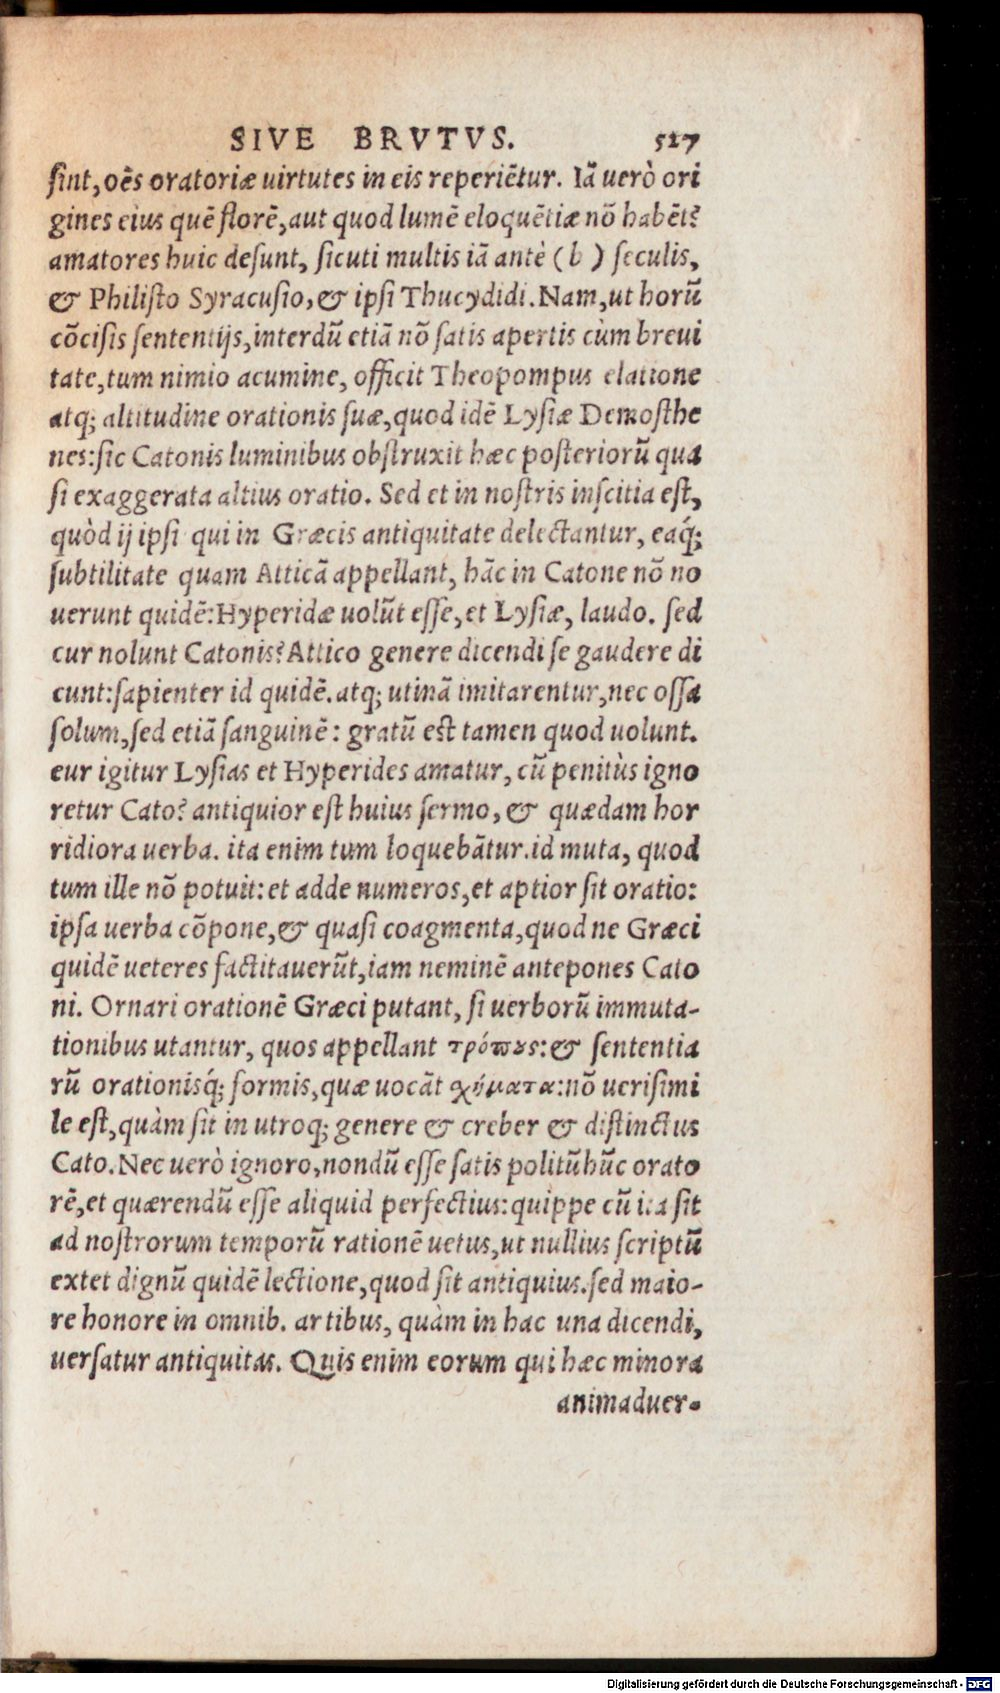 SIVE BRVTVS. 527
sint, oēs oratoriæ uirtutes in eis reperiētur. Iā uerò ori
gines eius quē florē, aut quod lumē eloquētiæ nō habēt?
amatores huic desunt, sicuti multis iā antè (b) seculis,
& Philisto Syracusio, & ipsi Thucydidi. Nam, ut horū
cōcisis sententijs, interdū etiā nō satis apertis cùm breui
tate, tum nimio acumine, officit Theopompus elatione
atq; altitudine orationis suæ, quod idē Lysiæ Demosthe
nes: sic Catonis luminibus obstruxit hæc posteriorū qua
si exaggerata altius oratio. Sed et in nostris inscitia est,
quòd ij ipsi qui in Græcis antiquitate delectantur, eaq́;
subtilitate quam Atticā appellant, hāc in Catone nō no
uerunt quidē: Hyperidæ uolūt esse, et Lysiæ, laudo. sed
cur nolunt Catonis? Attico genere dicendi se gaudere di
cunt: sapienter id quidē. atq; utinā imitarentur, nec ossa
solum, sed etiā sanguinē: gratū est tamen quod uolunt.
eur igitur Lysias et Hyperides amatur, cū penitùs igno
retur Cato? antiquior est huius sermo, & quædam hor
ridiora uerba. ita enim tum loquebātur. id muta, quod
tum ille nō potuit: et adde numeros, et aptior sit oratio:
ipsa uerba cōpone, & quasi coagmenta, quod ne Græci
quidē ueteres factitauerūt, iam neminē antepones Cato
ni. Ornari orationē Græci putant, si uerborū immuta-
tionibus utantur, quos appellant τρόπους: & sententia
rū orationisq́; formis, quæ uocāt σχήματα: nō uerisimi
le est, quàm sit in utroq; genere & creber & distinctus
Cato. Nec uerò ignoro, nondū esse satis politū hūc orato
rē, et quærendū esse aliquid perfectius: quippe cū ita sit
ad nostrorum temporū rationē uetus, ut nullius scriptū
extet dignū quidē lectione, quod sit antiquius. sed maio-
re honore in omnib. artibus, quàm in hac una dicendi,
uersatur antiquitas. Quis enim eorum qui hæc minora
animaduer-
Digitalisierung gefördert durch die Deutsche Forschungsgemeinschaft - DFG